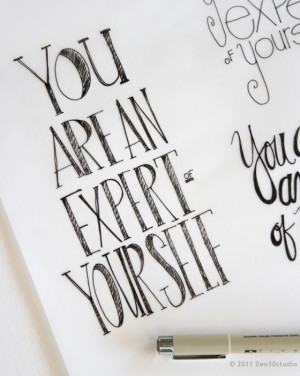 YOU
ARE AN
EXPERT OF
YOURSELF
expe
OF yours
You a
an
of
© 2011 Deo10studio